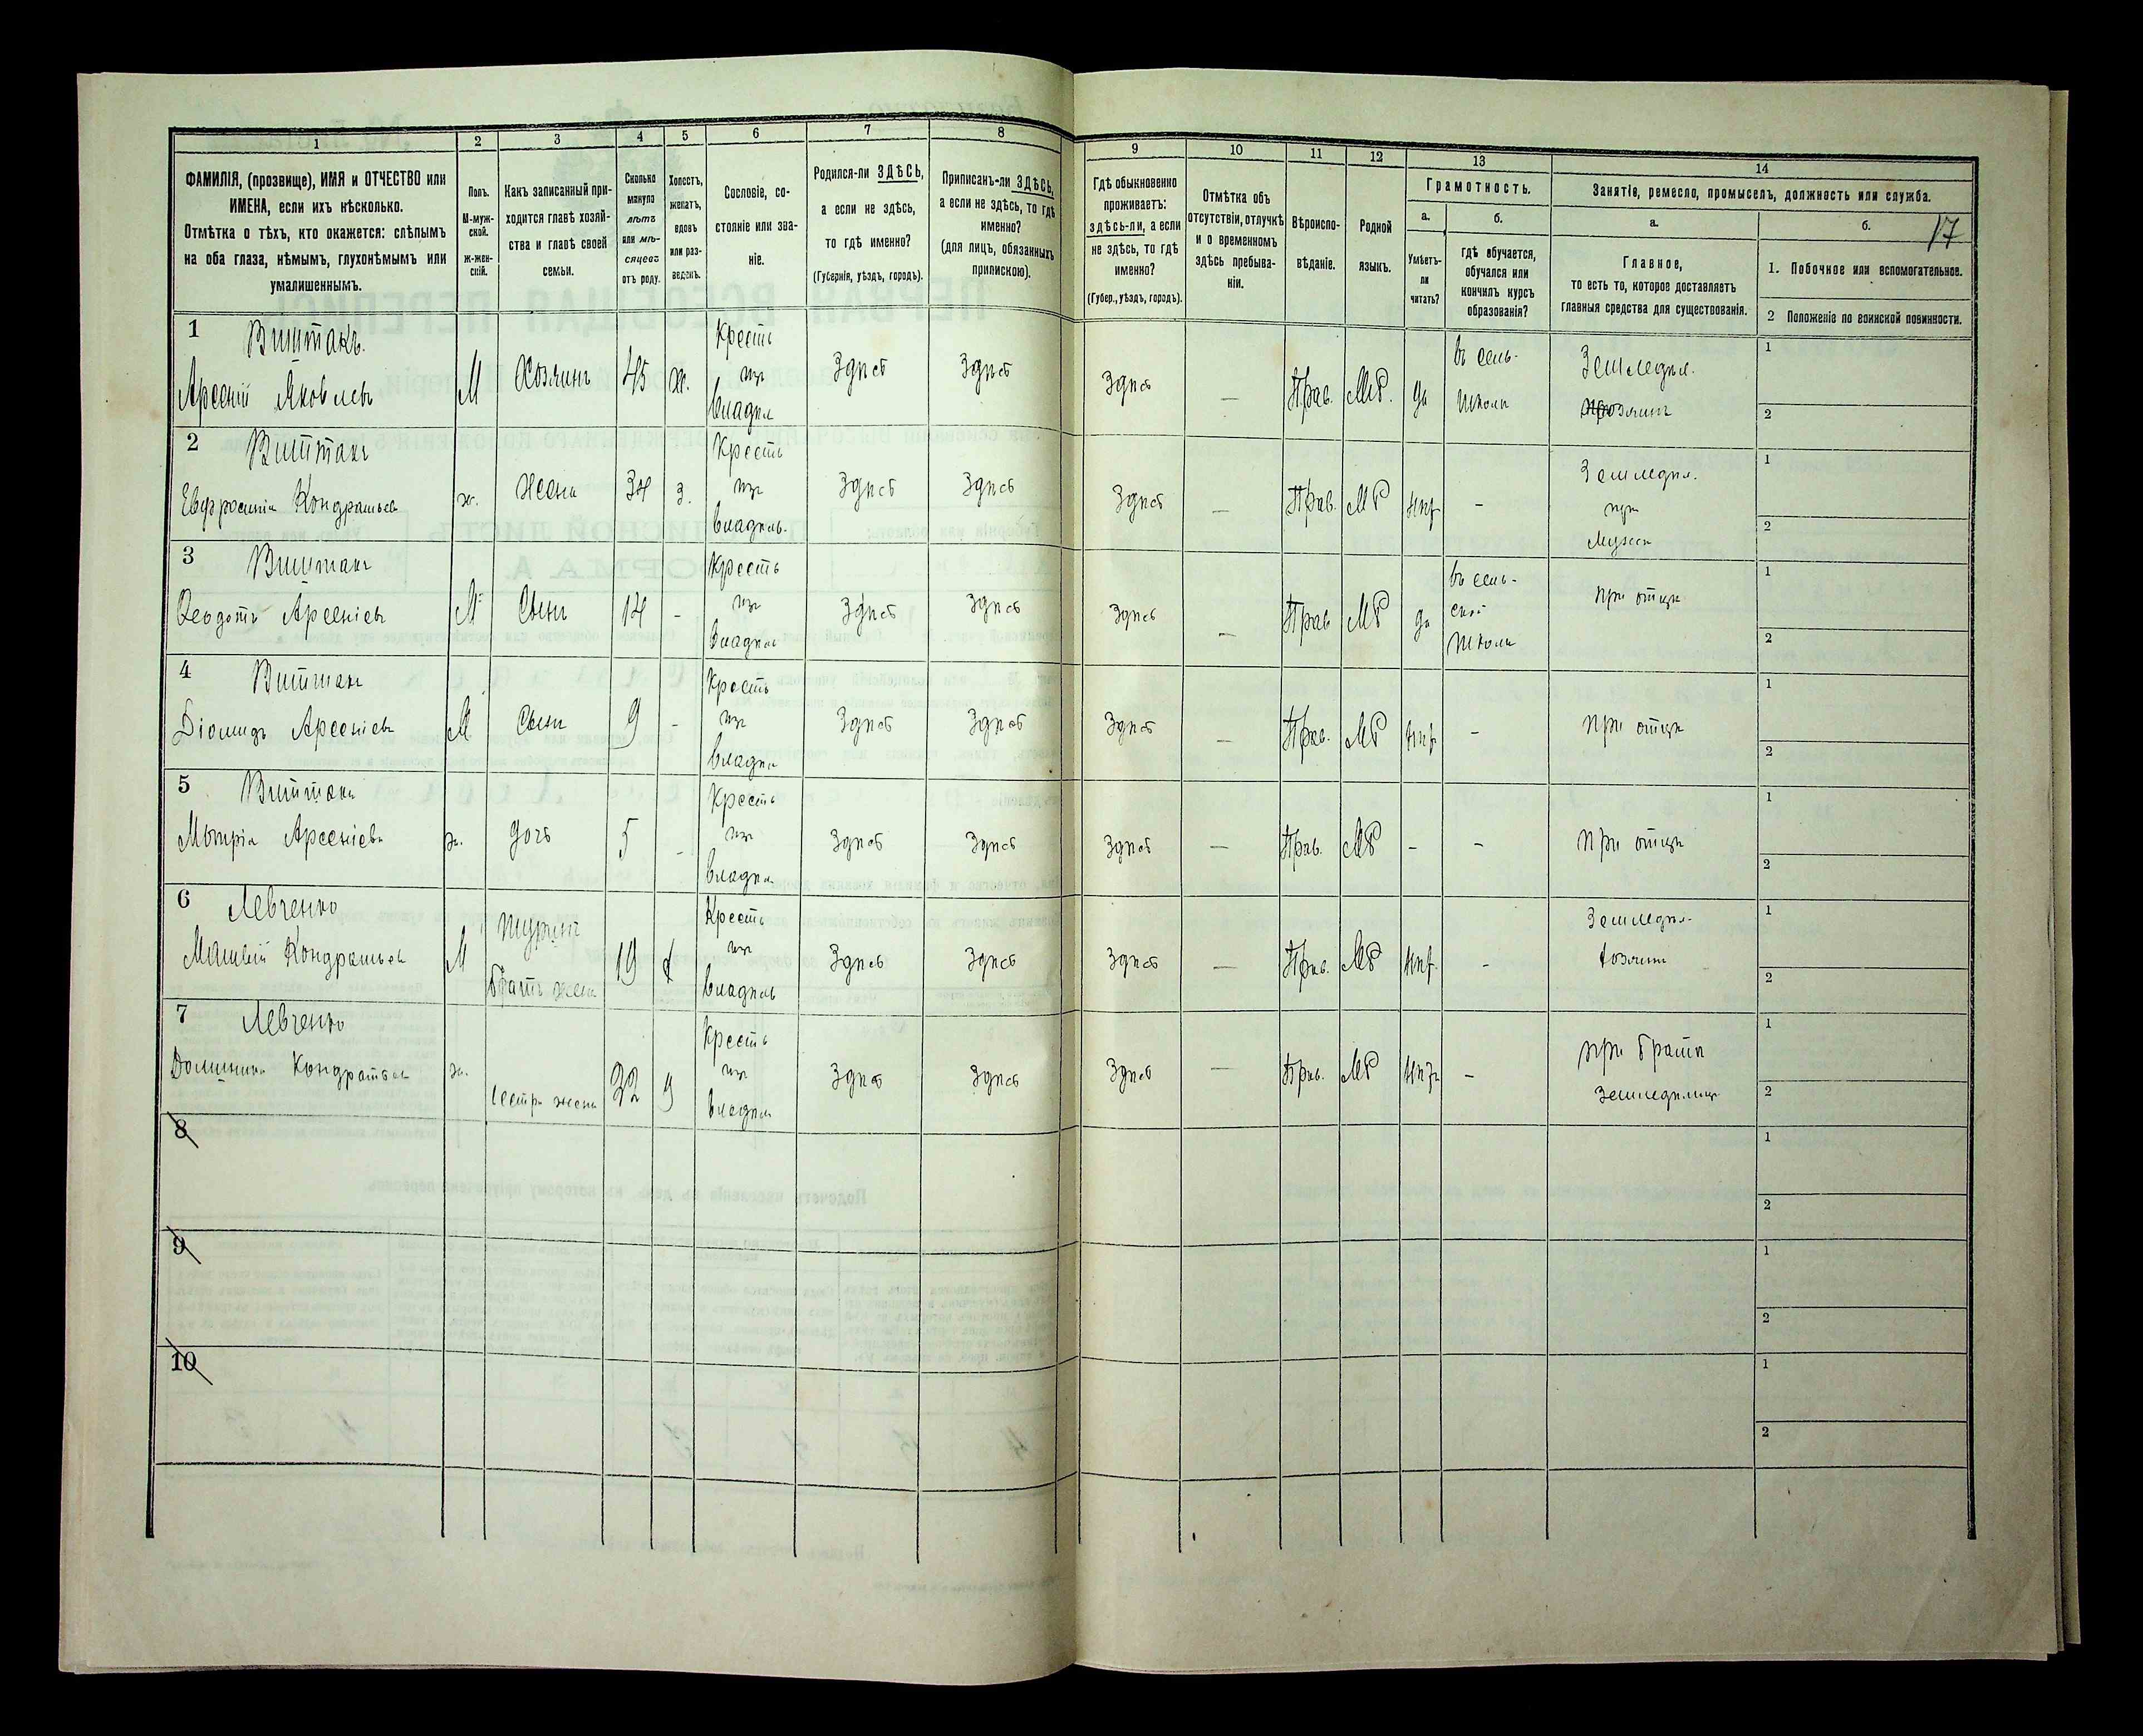 1
2
3
4
5
6
7
8
9
10
11
12
13
14
ФАМИЛІЯ, (прозвище), ИМЯ и ОТЧЕСТВО или
ИМЕНА, если ихъ нѣсколько.
Отмѣтка о тѣхъ, кто окажется: слѣпымъ
на оба глаза, нѣмымъ, глухонѣмымъ или
умалишеннымъ.
Полъ.
М-муж-
ской.
Ж-жен-
скій.
Какъ записанный при-
ходится главѣ хозяй-
ства и главѣ своей
семьи.
Сколько
минуло
лѣтъ
или мѣ-
сяцевъ
отъ роду.
Холостъ,
женатъ,
вдовъ
или раз-
веденъ.
Сословіе, со-
стояніе или зва-
ніе.
Родился-ли ЗДѢСЬ,
а если не здѣсь,
то гдѣ именно?
(Губернія, уѣздъ, городъ).
Приписанъ-ли ЗДѢСЬ,
а если не здѣсь, то гдѣ
именно?
(для лицъ, обязанныхъ
припискою).
Гдѣ обыкновенно
проживаетъ:
здѣсь-ли, а если
не здѣсь, то гдѣ
именно?
(Губер., уѣздъ, городъ).
Отмѣтка объ
отсутствіи, отлучкѣ
и о временномъ
здѣсь пребыва-
ніи.
Вѣроиспо-
вѣданіе.
Родной
языкъ.
Грамотность.
а.
б.
Умѣетъ-
ли
читать?
гдѣ обучается,
обучался или
кончилъ курсъ
образованія?
Занятіе, ремесло, промыселъ, должность или служба.
а.
б.
17
Главное,
то есть то, которое доставляетъ
главныя средства для существованія.
1. Побочное или вспомогательное.
2 Положеніе по воинской повинности.
1
Арсеній Яковлевъ
М
Хозяинъ
45
ж.
Кресть
изъ
владѣл
Здѣсь
Здѣсь
Здѣсь
—
Прав.
МР.
да
въ сель-
школѣ
Земледѣл.
1
2
2
Евфросинія Кондратьев
ж.
Жена
34
з.
Кресть
изъ
владѣль.
Здѣсь
Здѣсь
Здѣсь
—
Прав.
МР
-
Земледѣл.
при
мужѣ
1
2
3
Феодотъ Арсеніевъ
М
Сынъ
14
-
Кресть
изъ
владѣл
Здѣсь
Здѣсь
Здѣсь
—
Прав
МР
да
въ сель-
ской
школѣ
при отцѣ
1
2
4
Діомидъ Арсеніевъ
М
Сынъ
9
-
Кресть
изъ
владѣл
Здѣсь
Здѣсь
Здѣсь
—
Прав.
МР
-
при отцѣ
1
2
5
Арсеніева
ж.
дочь
5
-
Кресть
изъ
владѣл
Здѣсь
Здѣсь
Здѣсь
—
Прав.
МР
-
-
при отцѣ
1
2
6 Левченко
Матвѣй Кондратьев
М
Шуринъ
братъ жены
19
Кресть
изъ
владѣль
Здѣсь
Здѣсь
Здѣсь
—
Прав.
МР
-
Земледѣл-
хозяинъ
1
2
7 Левченко
Кондратьев
ж.
сестра жены
22
Кресть
изъ
владѣл
Здѣсь
Здѣсь
Здѣсь
—
Прав.
МР
-
при братѣ
1
2
8
1
2
9
1
2
10
1
2